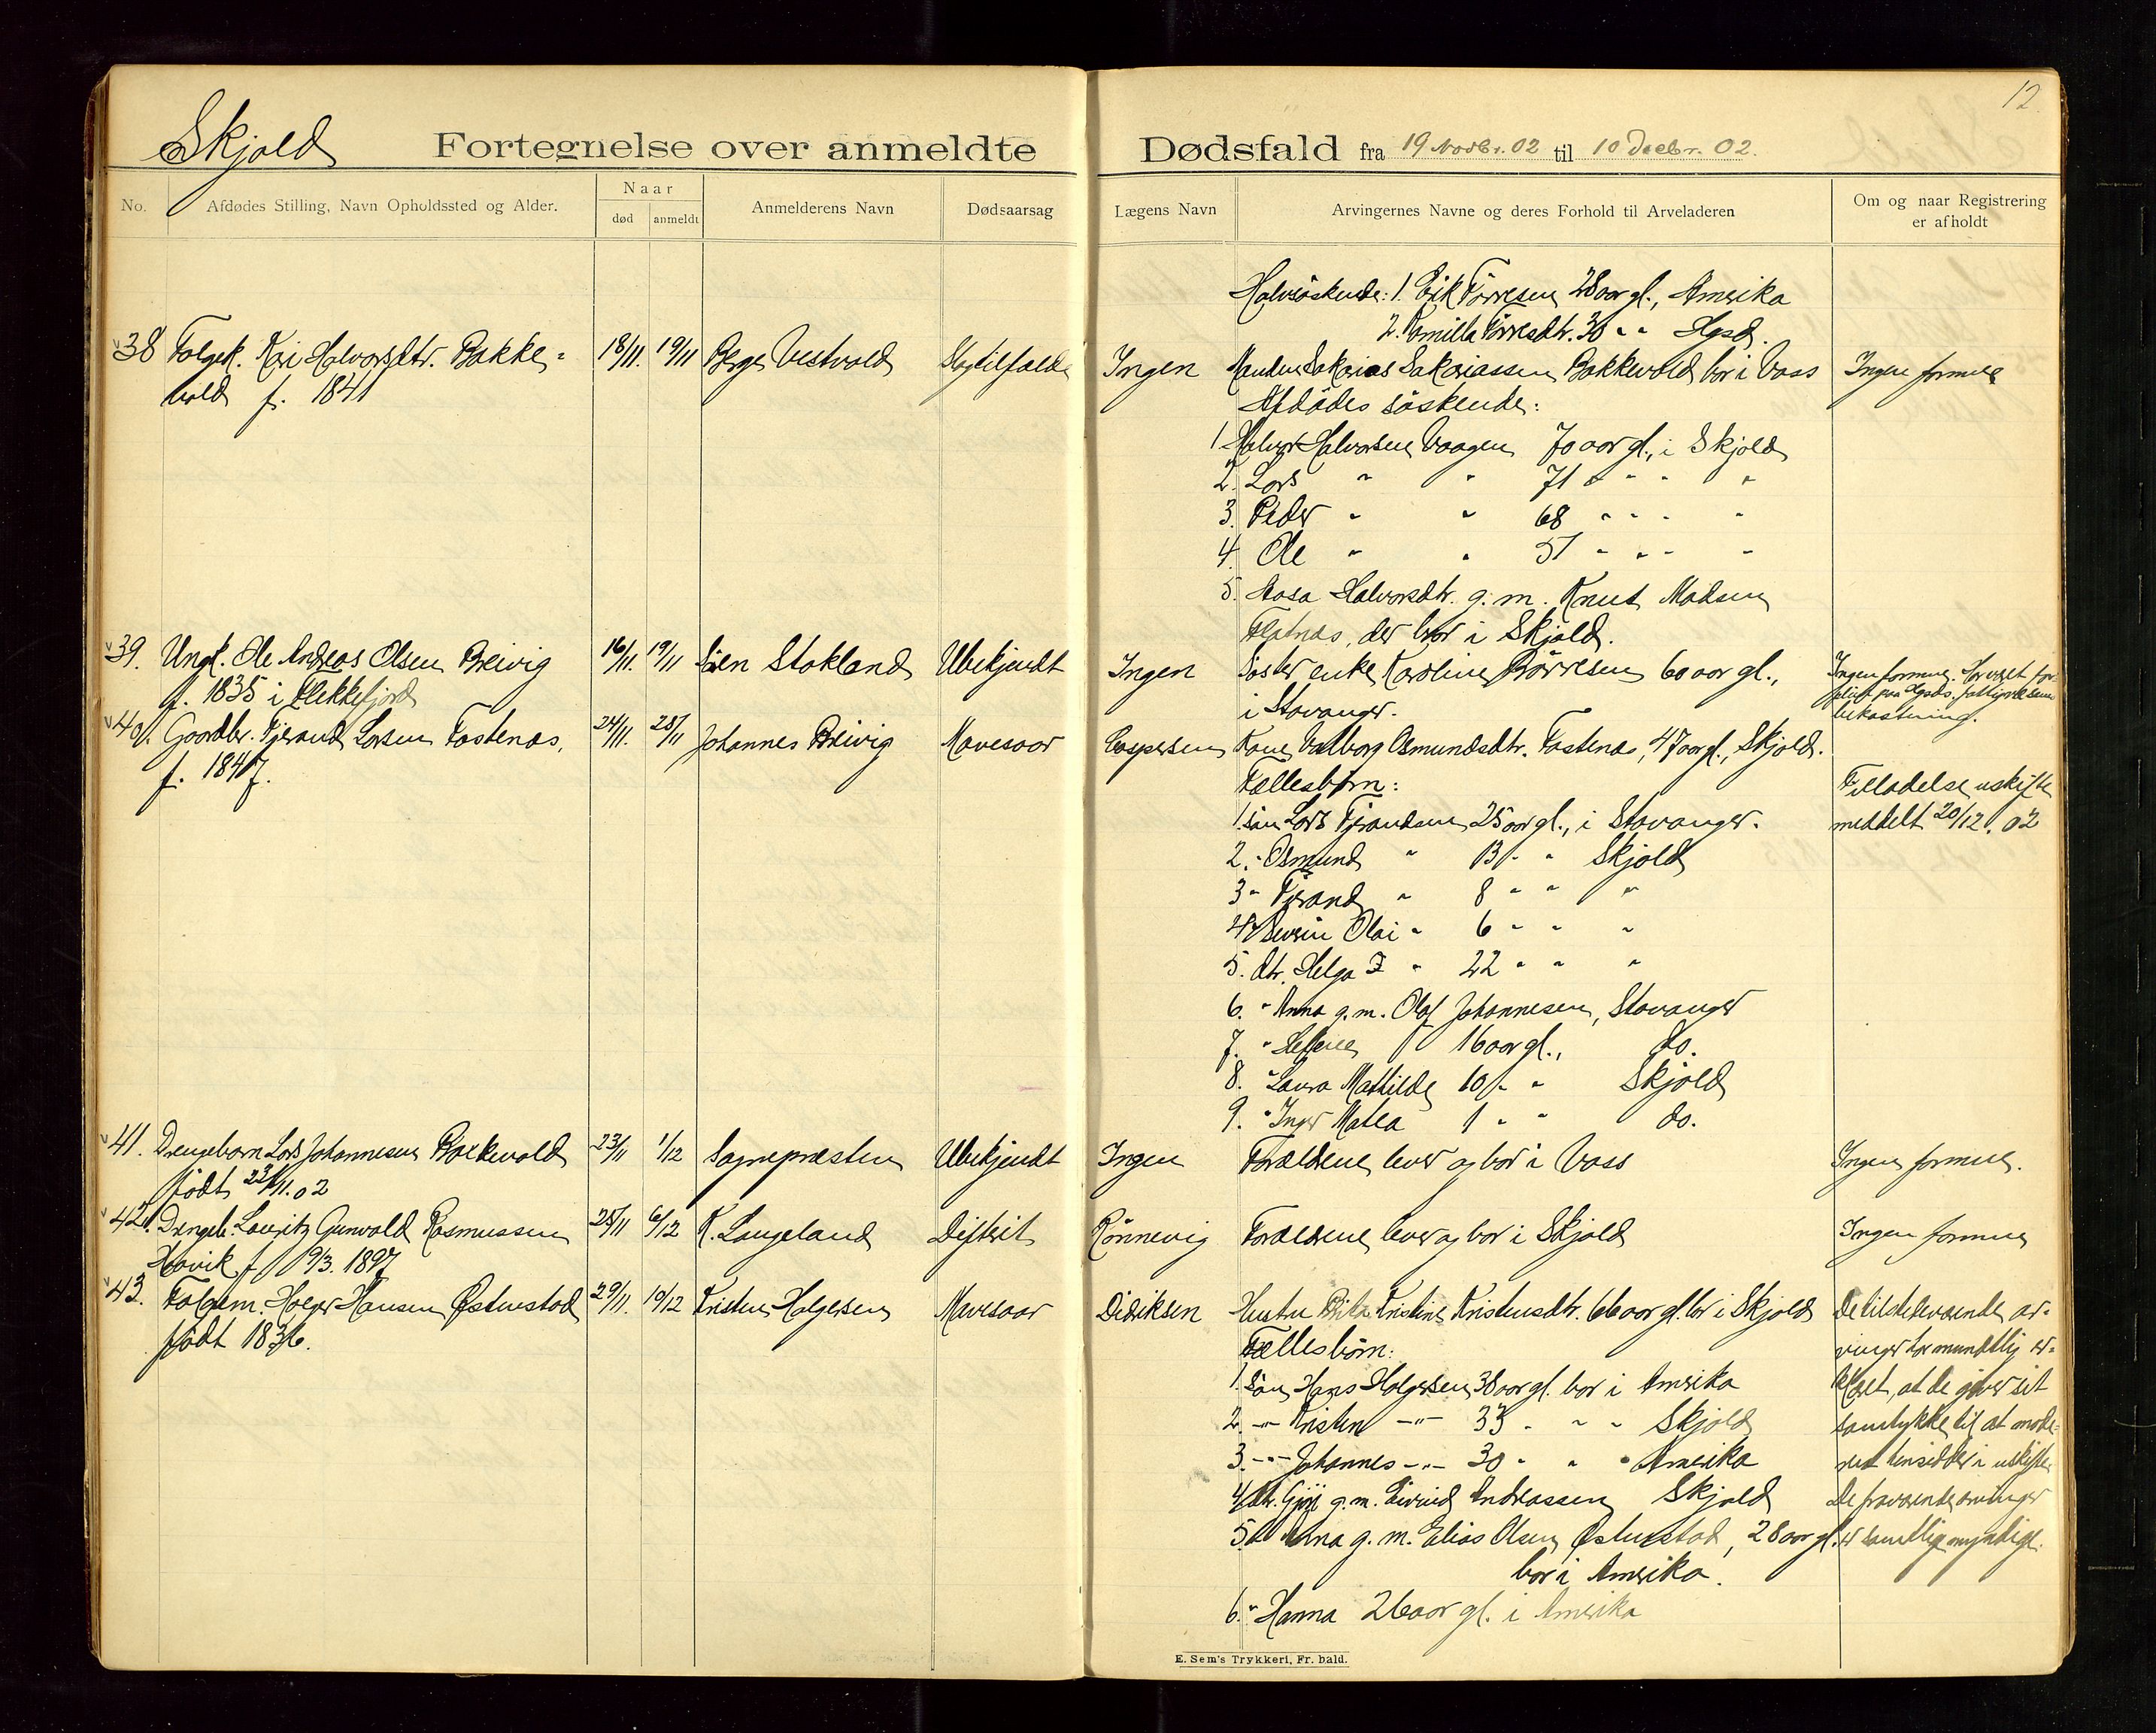 12
Skjold Fortegnelse over anmeldte Dødsfald fra 19 Novbr. 02 til 10 Decbr. 02.
No. Afdødes Stilling, Navn Opholdssted og Alder. Naar død anmeldt Anmelderens Navn Dødsaarsag Lægens Navn Arvingernes Navne og deres Forhold til Arveladeren Om og naar Registrering er afholdt
Halvsøskende: 1. Erik Tørresen 28 aar gl., Amerika
2. Kamilla Tørresdtr. 30 " " Hgsd.
38 Folgek. Kari Halvorsdtr. Bakke- 18/11. 19/11 Berge Vestvold Slagtilfælde Ingen Manden Sakarias Sakariassen Bakkevold bor i Vass Ingen formue
vold f. 1841 Afdødes søskende:
1. Halvor Halvorsen Vaagen 70 aar gl., i Skjold
2. Lars " " 71 " " " "
3. Peder " " 68 " " " "
4. Ole " " 57 " " " "
5. Aasa Halvorsdtr. g. m. Knut Madsen
Flatnæs, der bor i Skjold.
39. Ungk. Ole Andreas Olsen Breivig 16/11. 19/11 Søren Stakland Ubekjendt Ingen Søster enke Karoline Børresen 60 aar gl., Ingen formue. Forøget for-
f. 1835 i Flekkefjord i Stavanger. pleiet paa Hgsds. fattigvæsens
bekostning.
40. Gaardbr. Tjerand Larsen Fastenæs, 24/11. 25/11 Johannes Breivig Mavesaar Caspersen Kone Valborg Osmundsdtr. Fastenæs, 47 aar gl., Skjold.
f. 1847. Fællesbørn: Tilladelse uskifte
1. søn Lars Tjerandsen 25 aar gl., i Stavanger. meddelt 20/12. 02
2. " Osmund " 13 " " Skjold
3 " Tjerand " 8 " " "
4 " Severin Olai " 6 " " "
5. dtr. Helga T " 22 " " "
6. " Anna g. m. Olaf Johannesen, Stavanger
7. " 16 aar gl., do.
8. " Laura Mathilde 10 " " Skjold
9. " Inger Matea 1 " " do.
41. Drengebarn Lars Johannesen Bakkevold 23/11 1/12 Sognepresten Ubekjendt Ingen Forældrene lever og bor i Vass Ingen formue.
født 23/11. 02
42. Drengeb. Lauritz Gunvald Rasmussen 25/11 6/12 K. Langeland Difterit Rønnevig Forældrene lever og bor i Skjold Ingen formue
Høvik f 19/3. 1897
43. Folgem. Holger Hansen Østenstad 29/11. 10/12 Kristen Holgersen Mavesaar Didriksen Hustru Brita Kristine Kristensdtr. 66 aar gl. bor i Skjold De tilstedeværende ar-
født 1836. Fællesbørn: vinger har mundtlig er-
1. Søn Hans Holgersen 38 aar gl. bor i Amerika klæret, at de giver sit
2. -"- Kristen -"- 33 " " " Skjold samtykke til at mode-
3. -"- Johannes -"- 30 " " " Amerika ren hensidder i uskifte
4. dtr. Gjøri g. m. Eivind Andreassen Skjold De fraværende arvinger
5. " Anna g. m. Elias Olsen Østenstad, 28 aar gl. er samtlig myndige.
bor i Amerika.
6. " Hanna 26 aar gl. i Amerika
E. Sem's Trykkeri, Fr. hald.